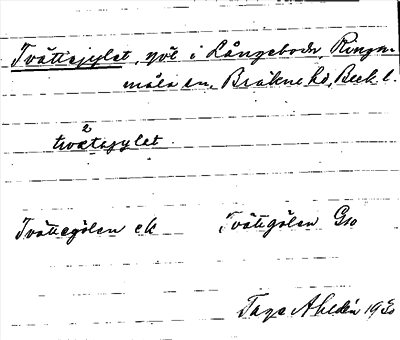 Tvättsjylet, göl i Långeboda, Ringa-
måla sn, Bräkne hd, Blek. l.
2
tvætsjylet.
Tvättegölen ek Tvättgölen Gso
Tage Ahldén 19